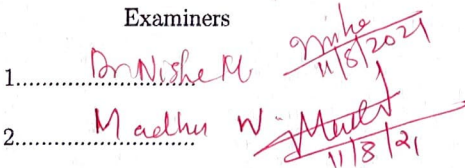 Examiners
1.................... Dr Nisha M Nisha 11/8/2021
2.................... Madhu W. 11/8/21